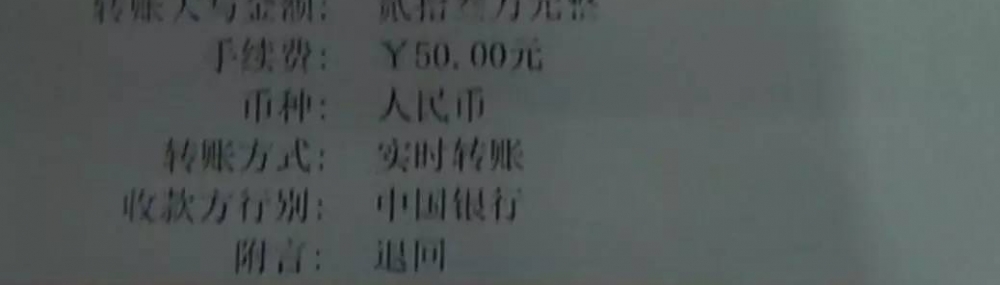 转账大写金额: 贰拾叁万元整
手续费: ￥50.00元
币种: 人民币
转账方式: 实时转账
收款方行别: 中国银行
附言: 退回